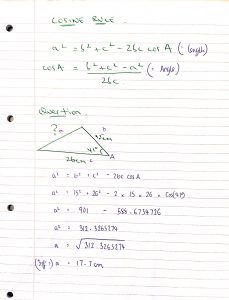 COSINE RULE.
a² = b² + c² - 2bc cos A (: length)
cos A = b² + c² - a² / 2bc (: Angle)
Question.
? a
b
15cm
41°
A
26cm c
a² = b² + c² - 2bc cos A
a² = 15² + 26² - 2 x 15 x 26 x Cos(41)
a² = 901 - 588.6734726
a² = 312.3265274
a = √312.3265274
(3sf) a = 17.7cm